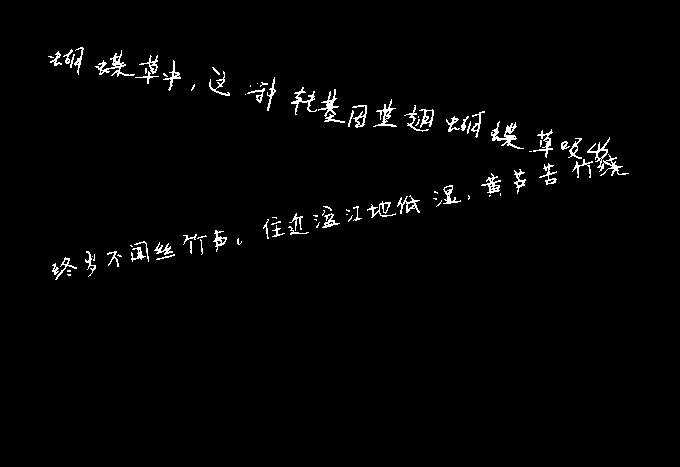 蝴蝶草中，这一种转基因蓝翅蝴蝶草吸收
终岁不闻丝竹声。住近湓江地低湿，黄芦苦竹绕